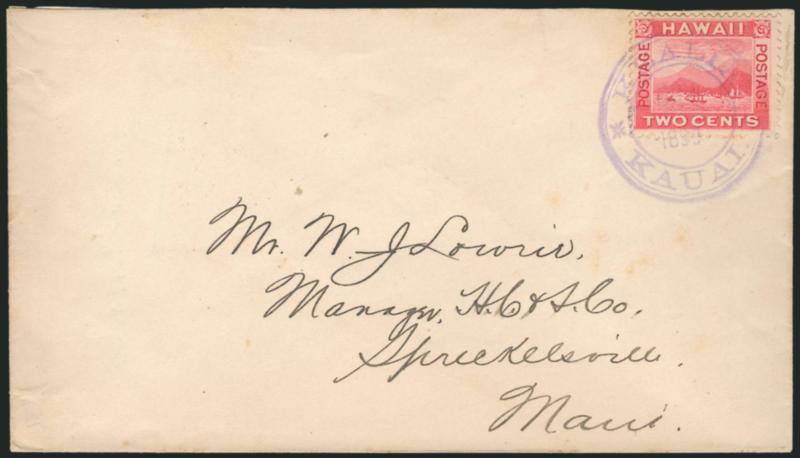 HAWAII
POSTAGE
POSTAGE
TWO CENTS
KAUAI.
Mr. W. J Lowrie,
Manager, H. C & S. Co,
Spreckelsville,
Maui.